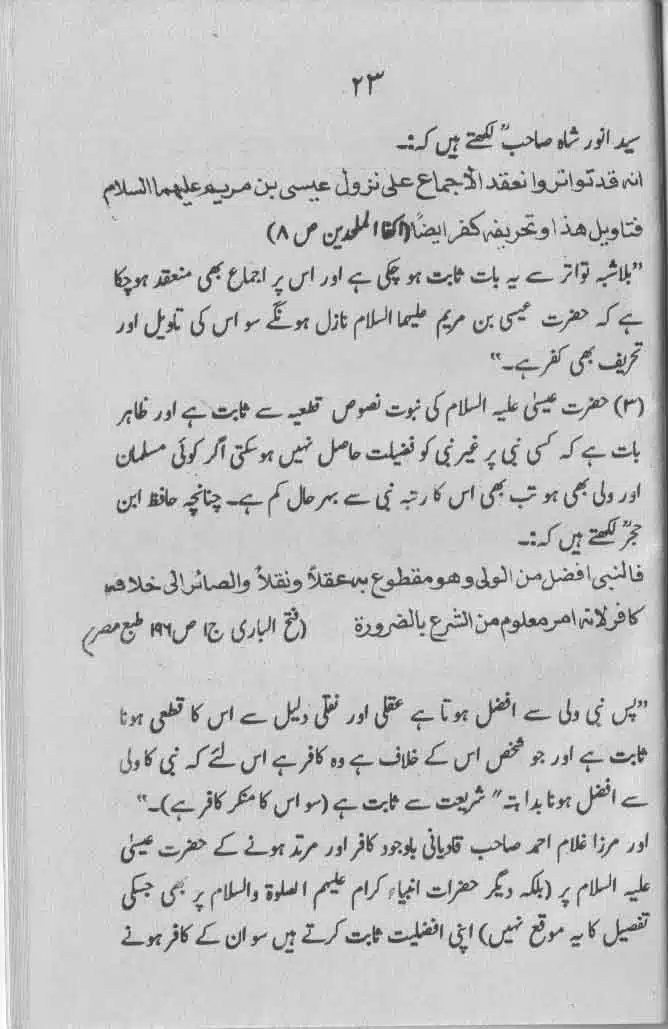 ۲۳
سید انور شاہ صاحبؒ لکھتے ہیں کہ:۔
انہ قد تواتر وانعقد الاجماع علی نزول عیسی بن مریم علیہما السلام
فتاویل ھذا وتحریفہ کفر ایضاً (اکفار الملحدین ص ۸)
”بلاشبہ تواتر سے یہ بات ثابت ہو چکی ہے اور اس پر اجماع بھی منعقد ہوچکا
ہے کہ حضرت عیسی بن مریم علیہما السلام نازل ہونگے سو اس کی تاویل اور
تحریف بھی کفر ہے۔“
(۳) حضرت عیسیٰ علیہ السلام کی نبوت نصوص قطعیہ سے ثابت ہے اور ظاہر
بات ہے کہ کسی نبی پر غیر نبی کو فضیلت حاصل نہیں ہوسکتی اگر کوئی مسلمان
اور ولی بھی ہو تب بھی اس کا رتبہ نبی سے بہرحال کم ہے۔ چنانچہ حافظ ابن
حجرؒ لکھتے ہیں کہ:۔
فالنبی افضل من الولی وھو مقطوع بہ عقلاً ونقلاً والصائر الی خلافہ
کافر لانہ امر معلوم من الشرع بالضرورۃ (فتح الباری ج۱ ص۱۹۶ طبع مصر)
”پس نبی ولی سے افضل ہوتا ہے عقلی اور نقلی دلیل سے اس کا قطعی ہونا
ثابت ہے اور جو شخص اس کے خلاف ہے وہ کافر ہے اس لئے کہ نبی کا ولی
سے افضل ہونا بداہتہ ″ شریعت سے ثابت ہے (سو اس کا منکر کافر ہے)۔“
اور مرزا غلام احمد صاحب قادیانی باوجود کافر اور مرتد ہونے کے حضرت عیسیٰ
علیہ السلام پر (بلکہ دیگر حضرات انبیاء کرام علیہم الصلوۃ والسلام پر بھی جسکی
تفصیل کا یہ موقع نہیں) اپنی افضلیت ثابت کرتے ہیں سو ان کے کافر ہونے